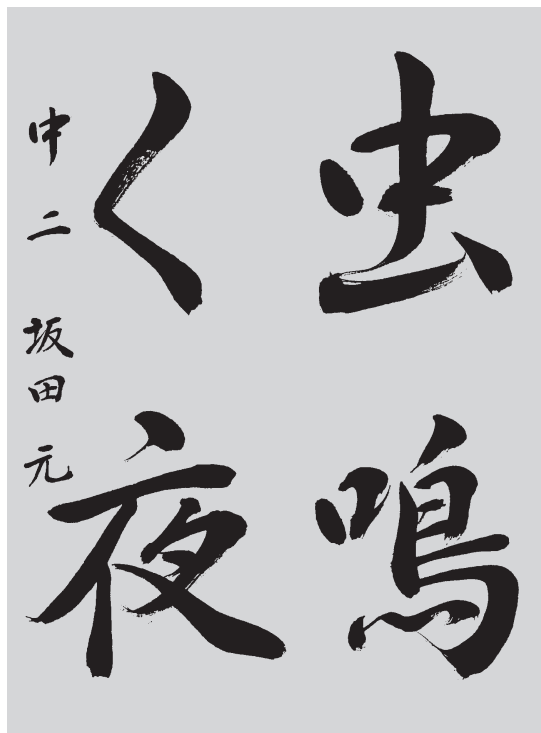 虫鳴
く夜
中二 坂田元